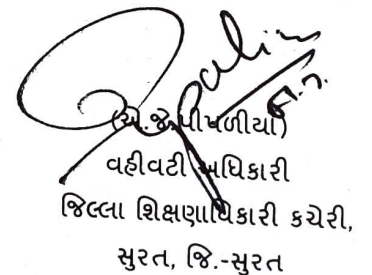 પીપળીયા)
વહીવટી અધિકારી
જિલ્લા શિક્ષણાધિકારી કચેરી,
સુરત, જિ.-સુરત